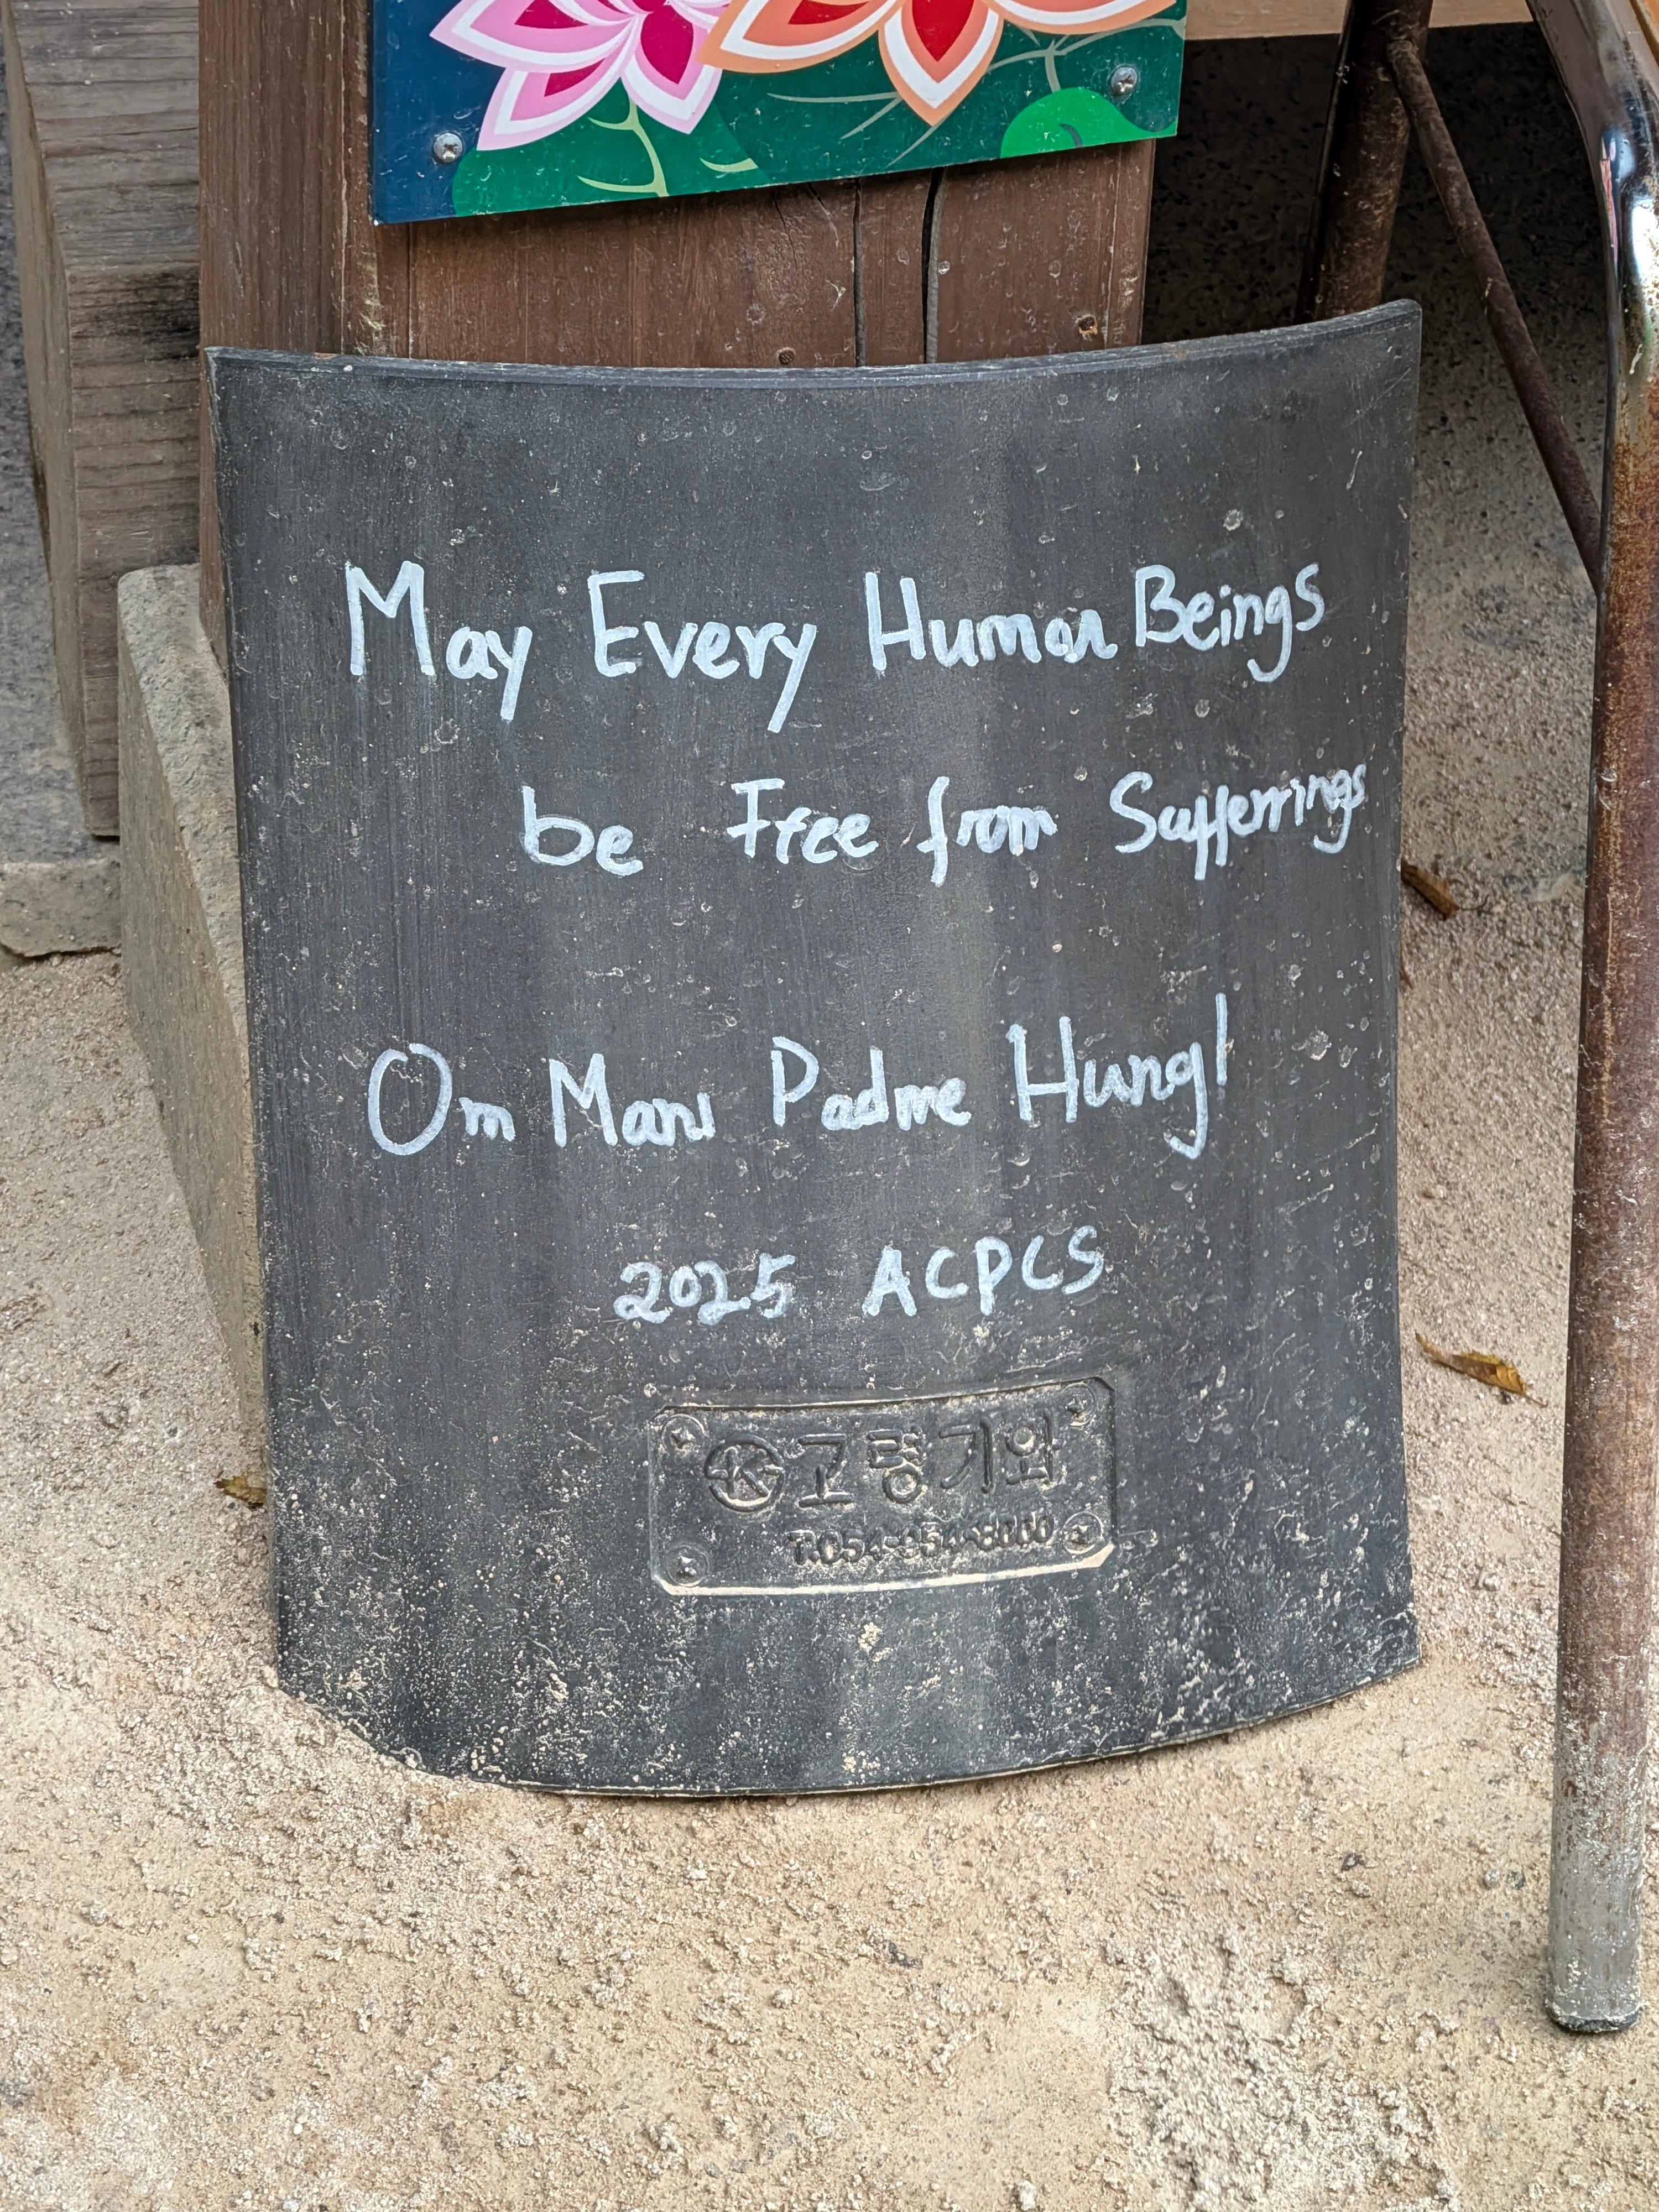 May Every Human Beings
be Free from Sufferrings
Om Mani Padme Hung!
2025 ACPCS
K 고령기와
T.054-954-8000